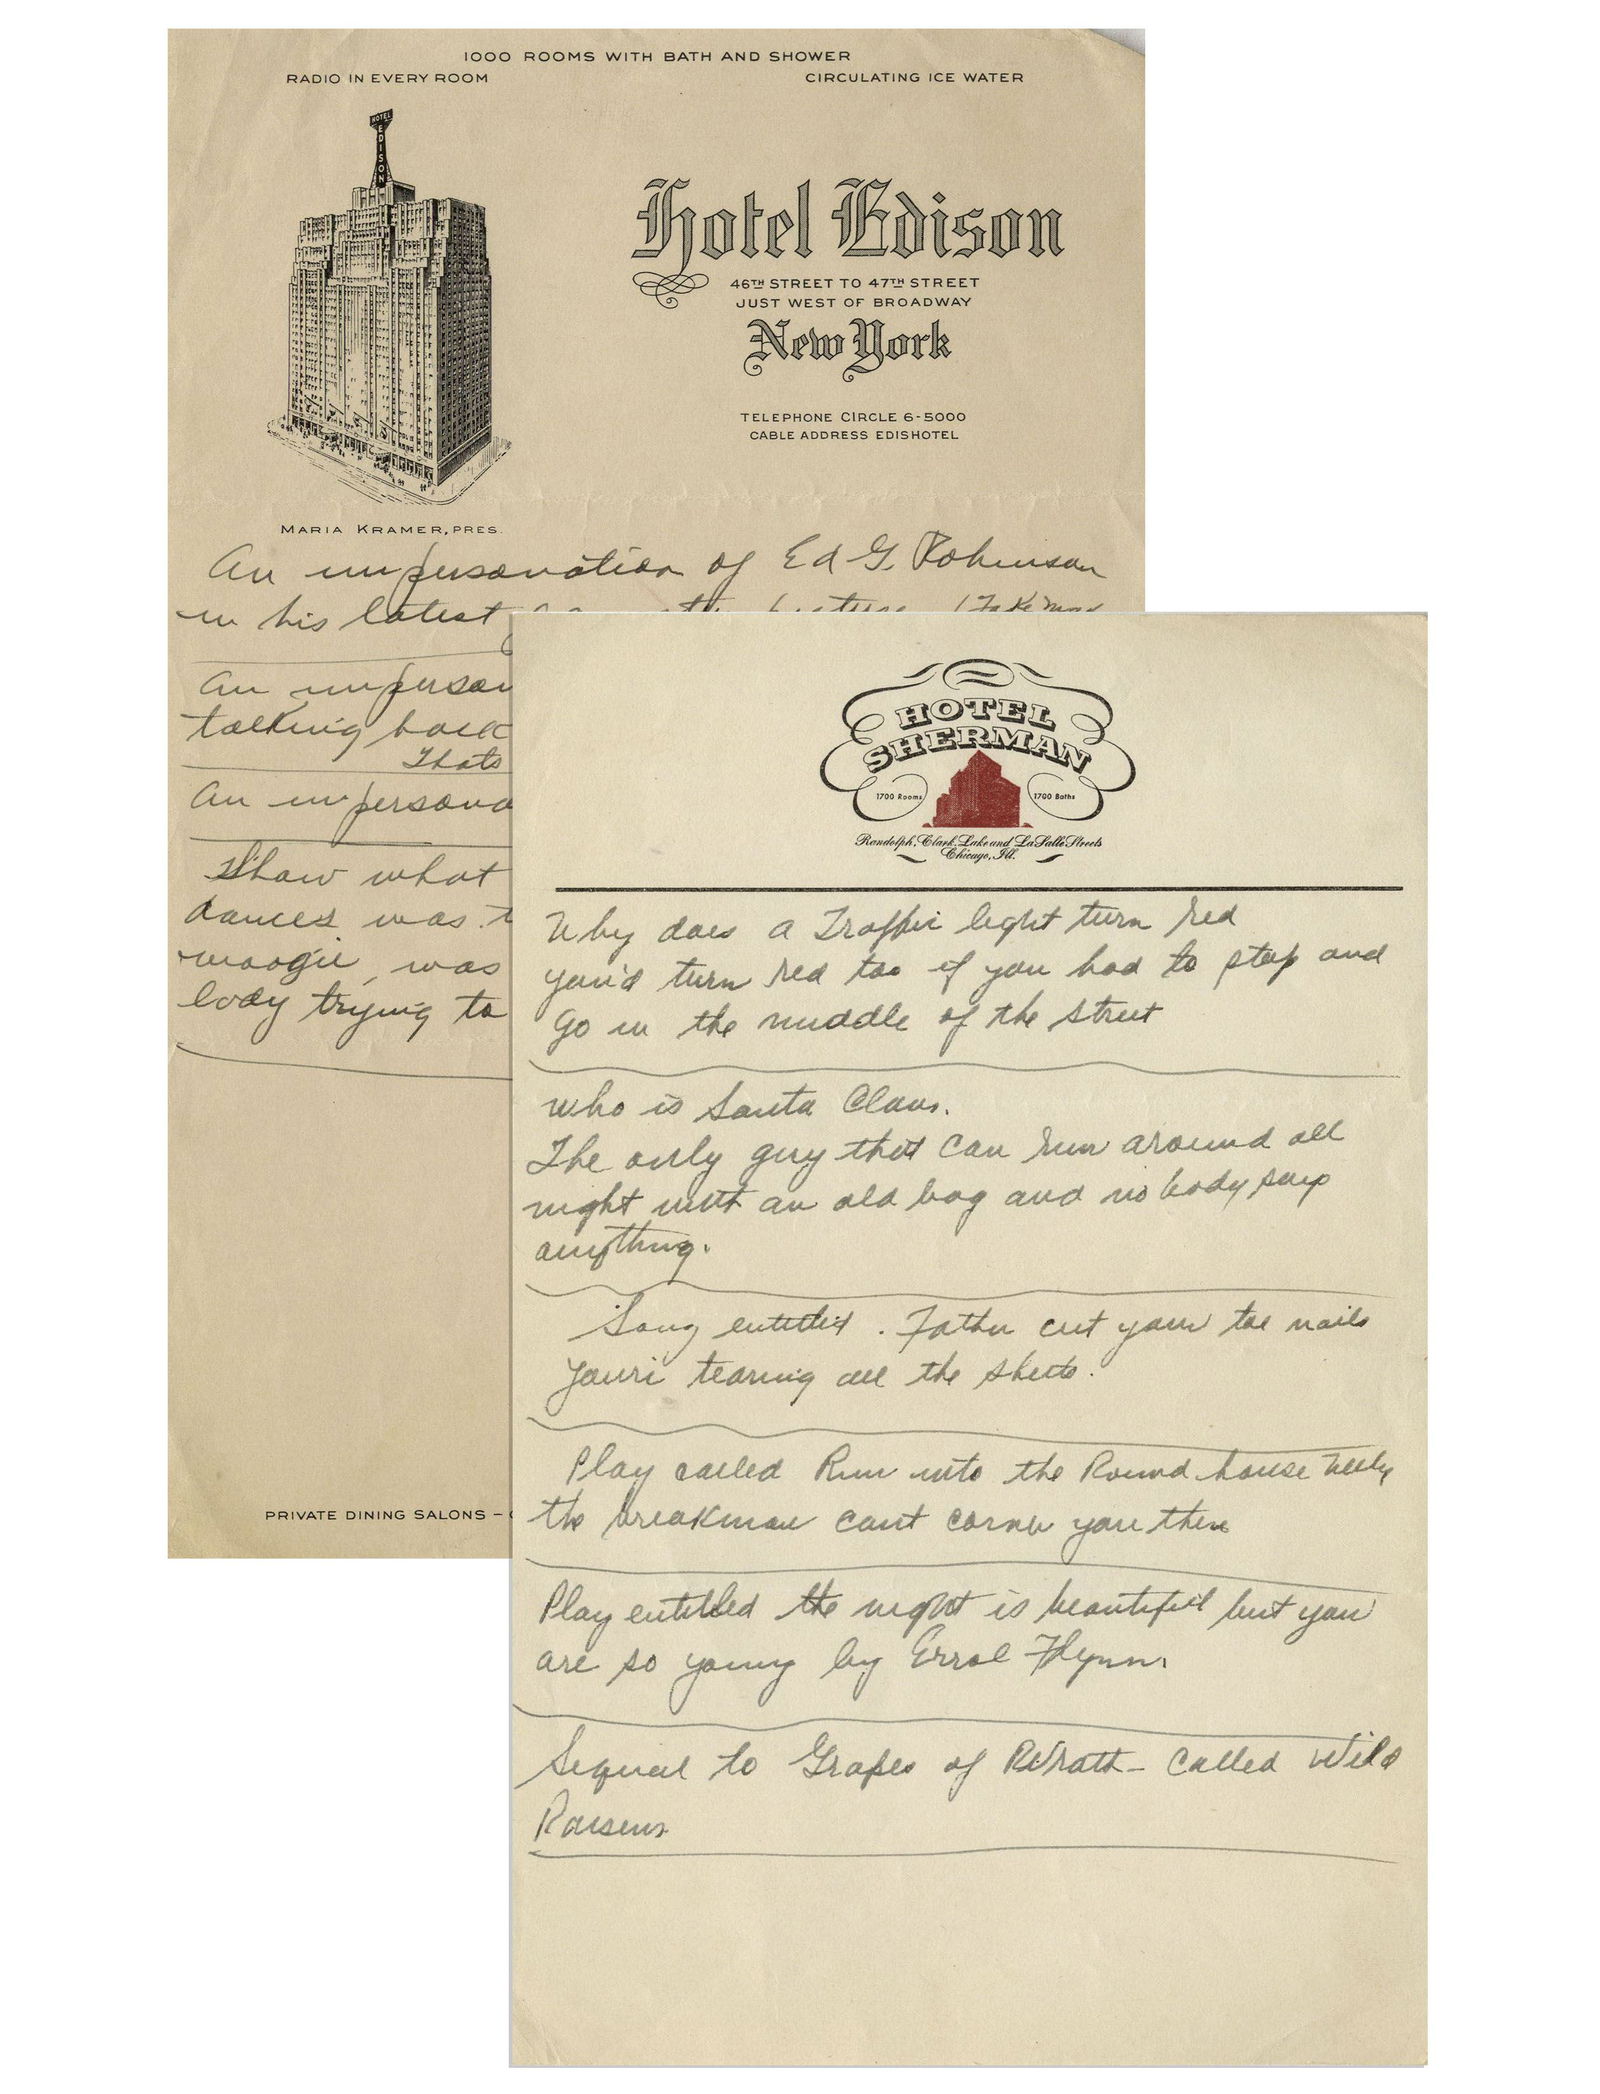 1000 ROOMS WITH BATH AND SHOWER
RADIO IN EVERY ROOM
CIRCULATING ICE WATER
HOTEL
EDISON
Hotel Edison
46TH STREET TO 47TH STREET
JUST WEST OF BROADWAY
New York
TELEPHONE CIRCLE 6-5000
CABLE ADDRESS EDISHOTEL
MARIA KRAMER, PRES.
An impersonation of Ed G. Robinson
in his latest picture
An imperson
talking back
Thats
An impersona
Show what
dances was
woogie, was
body trying to
PRIVATE DINING SALONS –
HOTEL
SHERMAN
1700 Rooms
1700 Baths
Randolph, Clark, Lake and La Salle Streets
Chicago, Ill.
Why does a Traffic light turn red
you'd turn red too if you had to stop and
Go in the middle of the street
Who is Santa Claus.
The only guy that can run around all
night with an old bag and no body says
anything.
Song entitled. Father cut your toe nails
your tearing all the sheets.
Play called Run into the Round house Nelly
the breakman cant corner you there
Play entitled the night is beautiful but you
are so young by Errol Flynn.
Sequel to Grapes of Wrath – Called Wild
Raisens